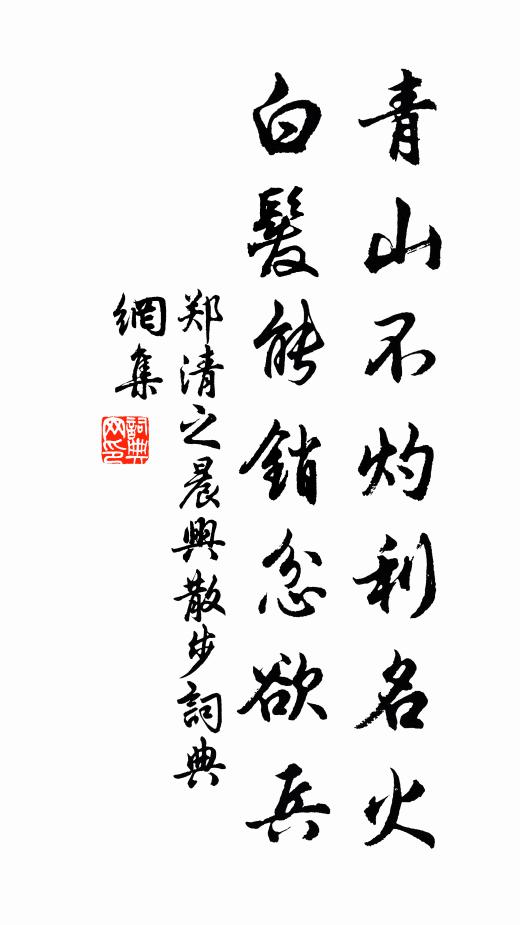 青山不灼利名火
白髮能銷忿欲兵
郑清之晨興散步詞典
網集
詞典
网印